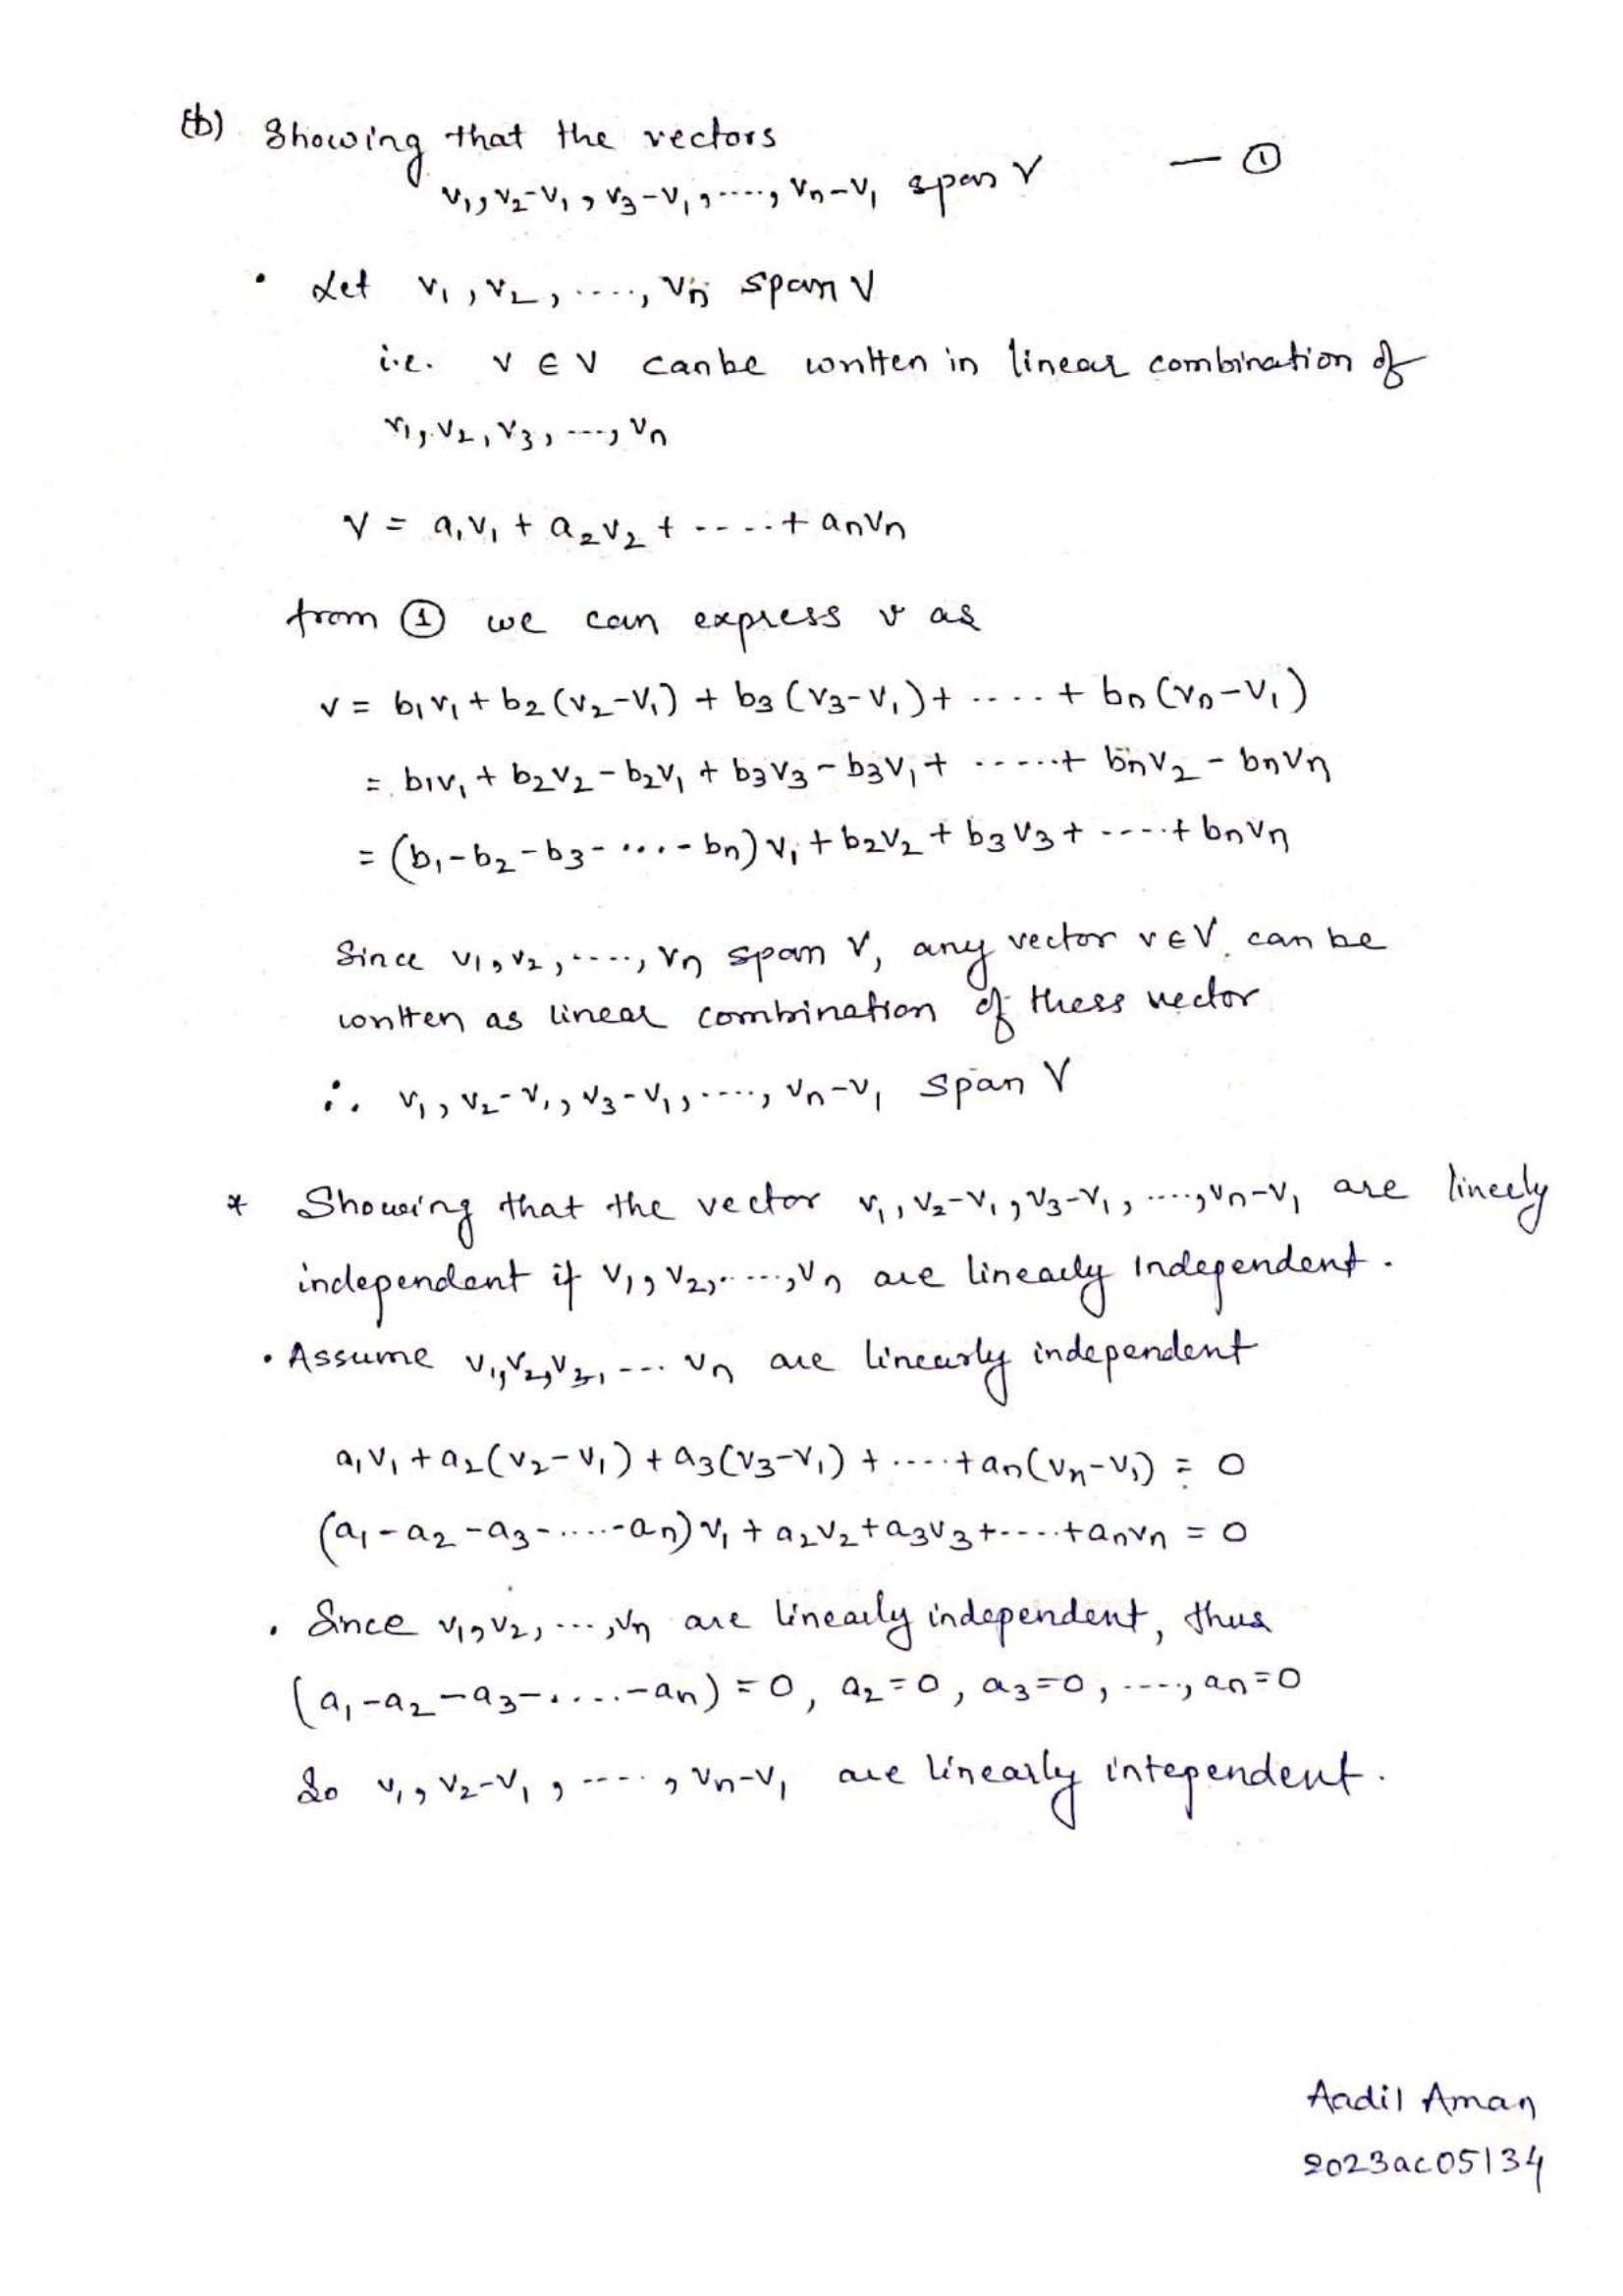 (b) Showing that the vectors
v₁, v₂-v₁, v₃-v₁, ....., vₙ-v₁ span V — ①
• Let v₁, v₂, ...., vₙ span V
i.e. v ∈ V can be written in linear combination of
v₁, v₂, v₃, ---, vₙ
v = a₁v₁ + a₂v₂ + ----- + aₙvₙ
from ① we can express v as
v = b₁v₁ + b₂(v₂-v₁) + b₃(v₃-v₁) + .... + bₙ(vₙ-v₁)
= b₁v₁ + b₂v₂ - b₂v₁ + b₃v₃ - b₃v₁ + ...... + bₙv₂ - bₙvₙ
= (b₁-b₂-b₃- .... - bₙ)v₁ + b₂v₂ + b₃v₃ + ----- + bₙvₙ
Since v₁, v₂, ----, vₙ span V, any vector v ∈ V. can be
written as linear combination of thess vector
∴ v₁, v₂-v₁, v₃-v₁, ----, vₙ-v₁ span V
* Showing that the vector v₁, v₂-v₁, v₃-v₁, ....., vₙ-v₁ are linecly
independent if v₁, v₂, ....., vₙ are linearly Independent.
• Assume v₁, v₂, v₃, --- vₙ are linearly independent
a₁v₁ + a₂(v₂-v₁) + a₃(v₃-v₁) + ..... + aₙ(vₙ-v₁) = 0
(a₁-a₂-a₃- ..... -aₙ)v₁ + a₂v₂ + a₃v₃ + ----- + aₙvₙ = 0
• Since v₁, v₂, ..., vₙ are linearly independent, thus
(a₁-a₂-a₃- ..... -aₙ) = 0, a₂=0, a₃=0, ----, aₙ=0
So v₁, v₂-v₁, -----, vₙ-v₁ are linearly intependent.
Aadil Aman
2023ac05134